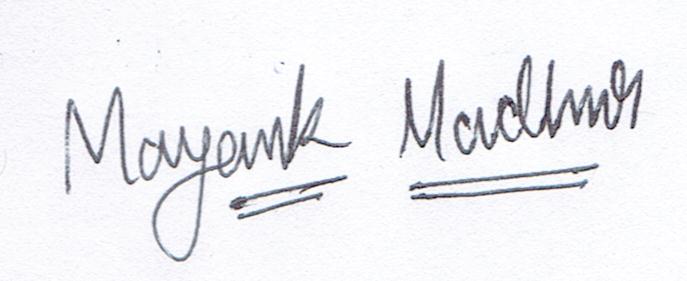 Mayank Madhur